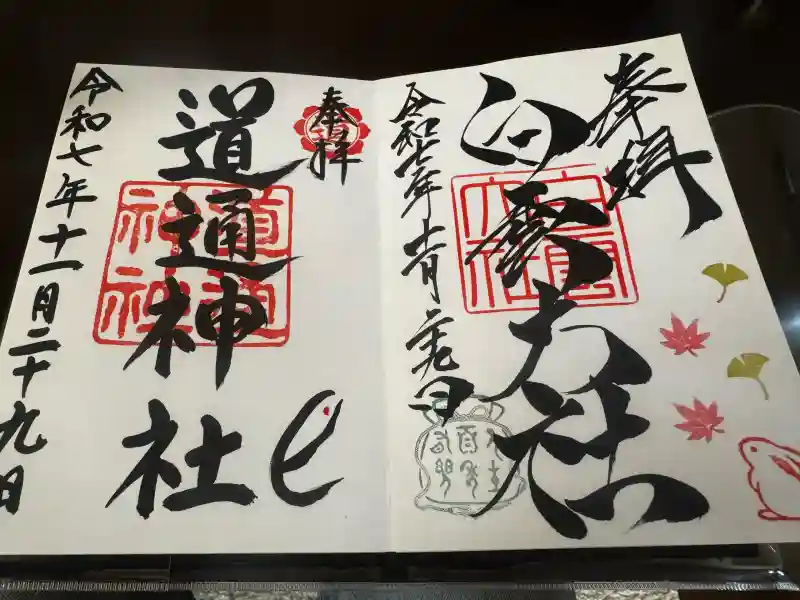 奉拝
出雲大社
令和七年十一月二十九日
奉拝
道通神社
令和七年十一月二十九日